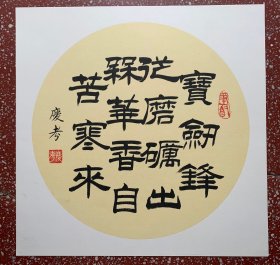 寶劍鋒
從磨礪出
槑華香自
苦寒來
慶孝